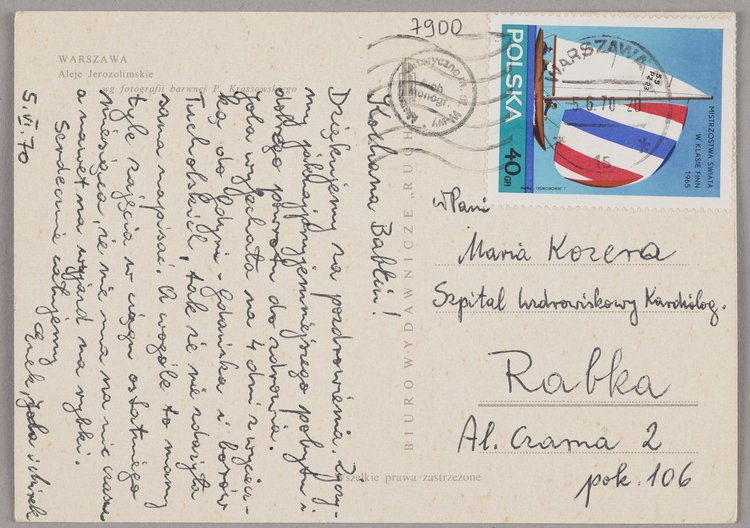 7900
WARSZAWA
Aleje Jerozolimskie
wg fotografii barwnej P. Krassowskiego
Kochana Babciu!
Dziękujemy za pozdrowienia. Życzy-
my jaknajprzyjemniejszego pobytu i
udego powrotu do zdrowia.
Jola wyjechała na 4 dni z wyciecz-
ką do Gdyni - Gdańska i borów
Tucholskich, tak, że nie zdążyła
sama napisać. A wogóle to mamy
tyle zajęcia w ciągu ostatniego
miesiąca, że nie ma na nic czasu
a nawet na wyjazd na rybki.
Serdecznie całujemy
Jola i Mirek
5.VI.70
BIURO WYDAWNICZE „RUCH"
Wszelkie prawa zastrzeżone
POLSKA 40 GR
MISTRZOSTWA ŚWIATA
W KLASIE FINN
1965
WARSZAWA
5.6.70-20
15
W Pani
Maria Kozera
Szpital Uzdrowiskowy Kardiolog.
Rabka
Al. Czarna 2
pok. 106